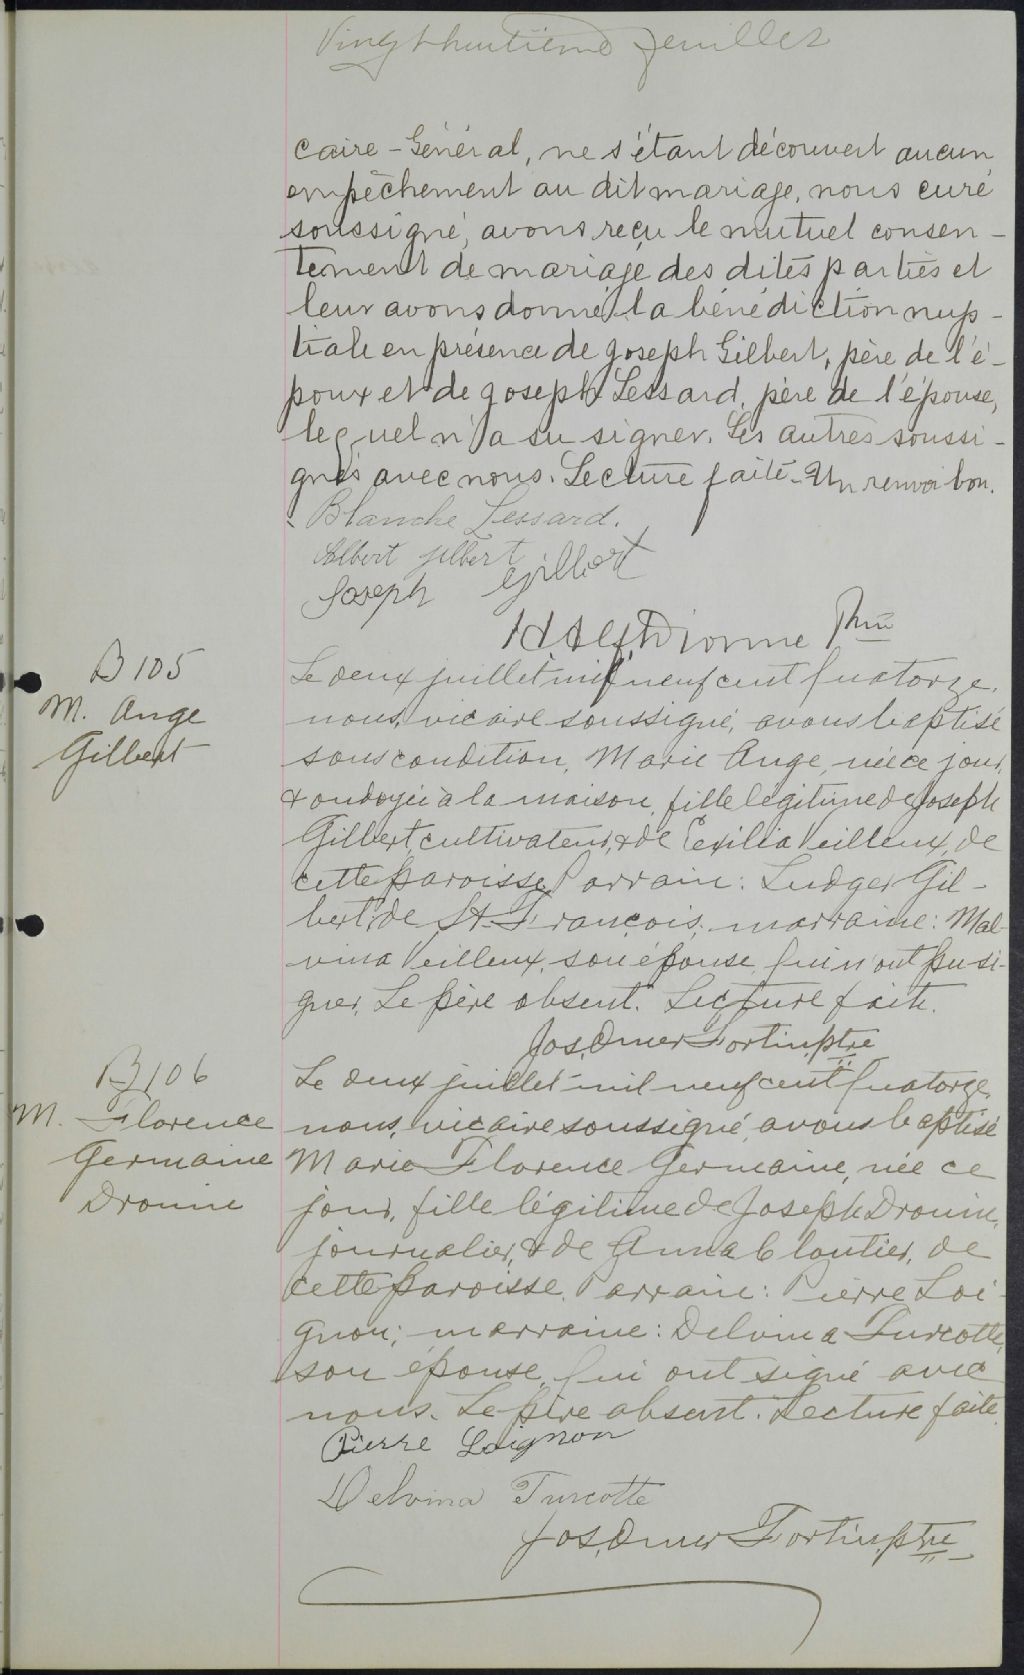 Vingt huitième feuillet
caire-Général, ne s'étant découvert aucun
empêchement au dit mariage, nous curé
soussigné, avons reçu le mutuel consen-
tement de mariage des dites parties et
leur avons donné la bénédiction nup-
tiale en présence de Joseph Gilbert, père de l'é-
poux et de Joseph Lessard, père de l'épouse,
lequel n'a su signer. Les autres soussi-
gnés avec nous. Lecture faite. Un renvoi bon.
Blanche Lessard.
Albert Jilbert
Joseph Gilbert
Dionne Ptre
B 105
M. Ange
Gilbert
Le deux juillet mil neuf cent quatorze,
nous, vicaire soussigné, avons baptisé
sous condition, Marie Ange, née ce jour,
& ondoyée à la maison, fille légitime de Joseph
Gilbert, cultivateur, & de Exilia Veilleux, de
cette paroisse. Parrain: Ludger Gil-
bert, de St. François; marraine: Mal-
vina Veilleux, son épouse, qui n'ont pu si-
gner. Le père absent. Lecture faite.
Jos. Omer Fortin, ptre
B 106
M. Florence
Germaine
Drouin
Le deux juillet mil neuf cent quatorze,
nous, vicaire soussigné, avons baptisé
Marie Florence Germaine, née ce
jour, fille légitime de Joseph Drouin,
journalier, & de Anna Cloutier, de
cette paroisse. Parrain: Pierre Loi-
gnon; marraine: Delvina Turcotte,
son épouse, qui ont signé avec
nous. Le père absent. Lecture faite.
Pierre Loignon
Delvina Turcotte
Jos. Omer Fortin, ptre